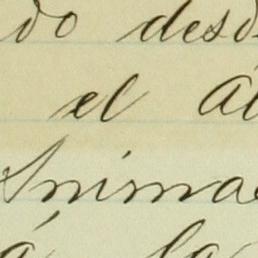 do desd
el
Anima
á la